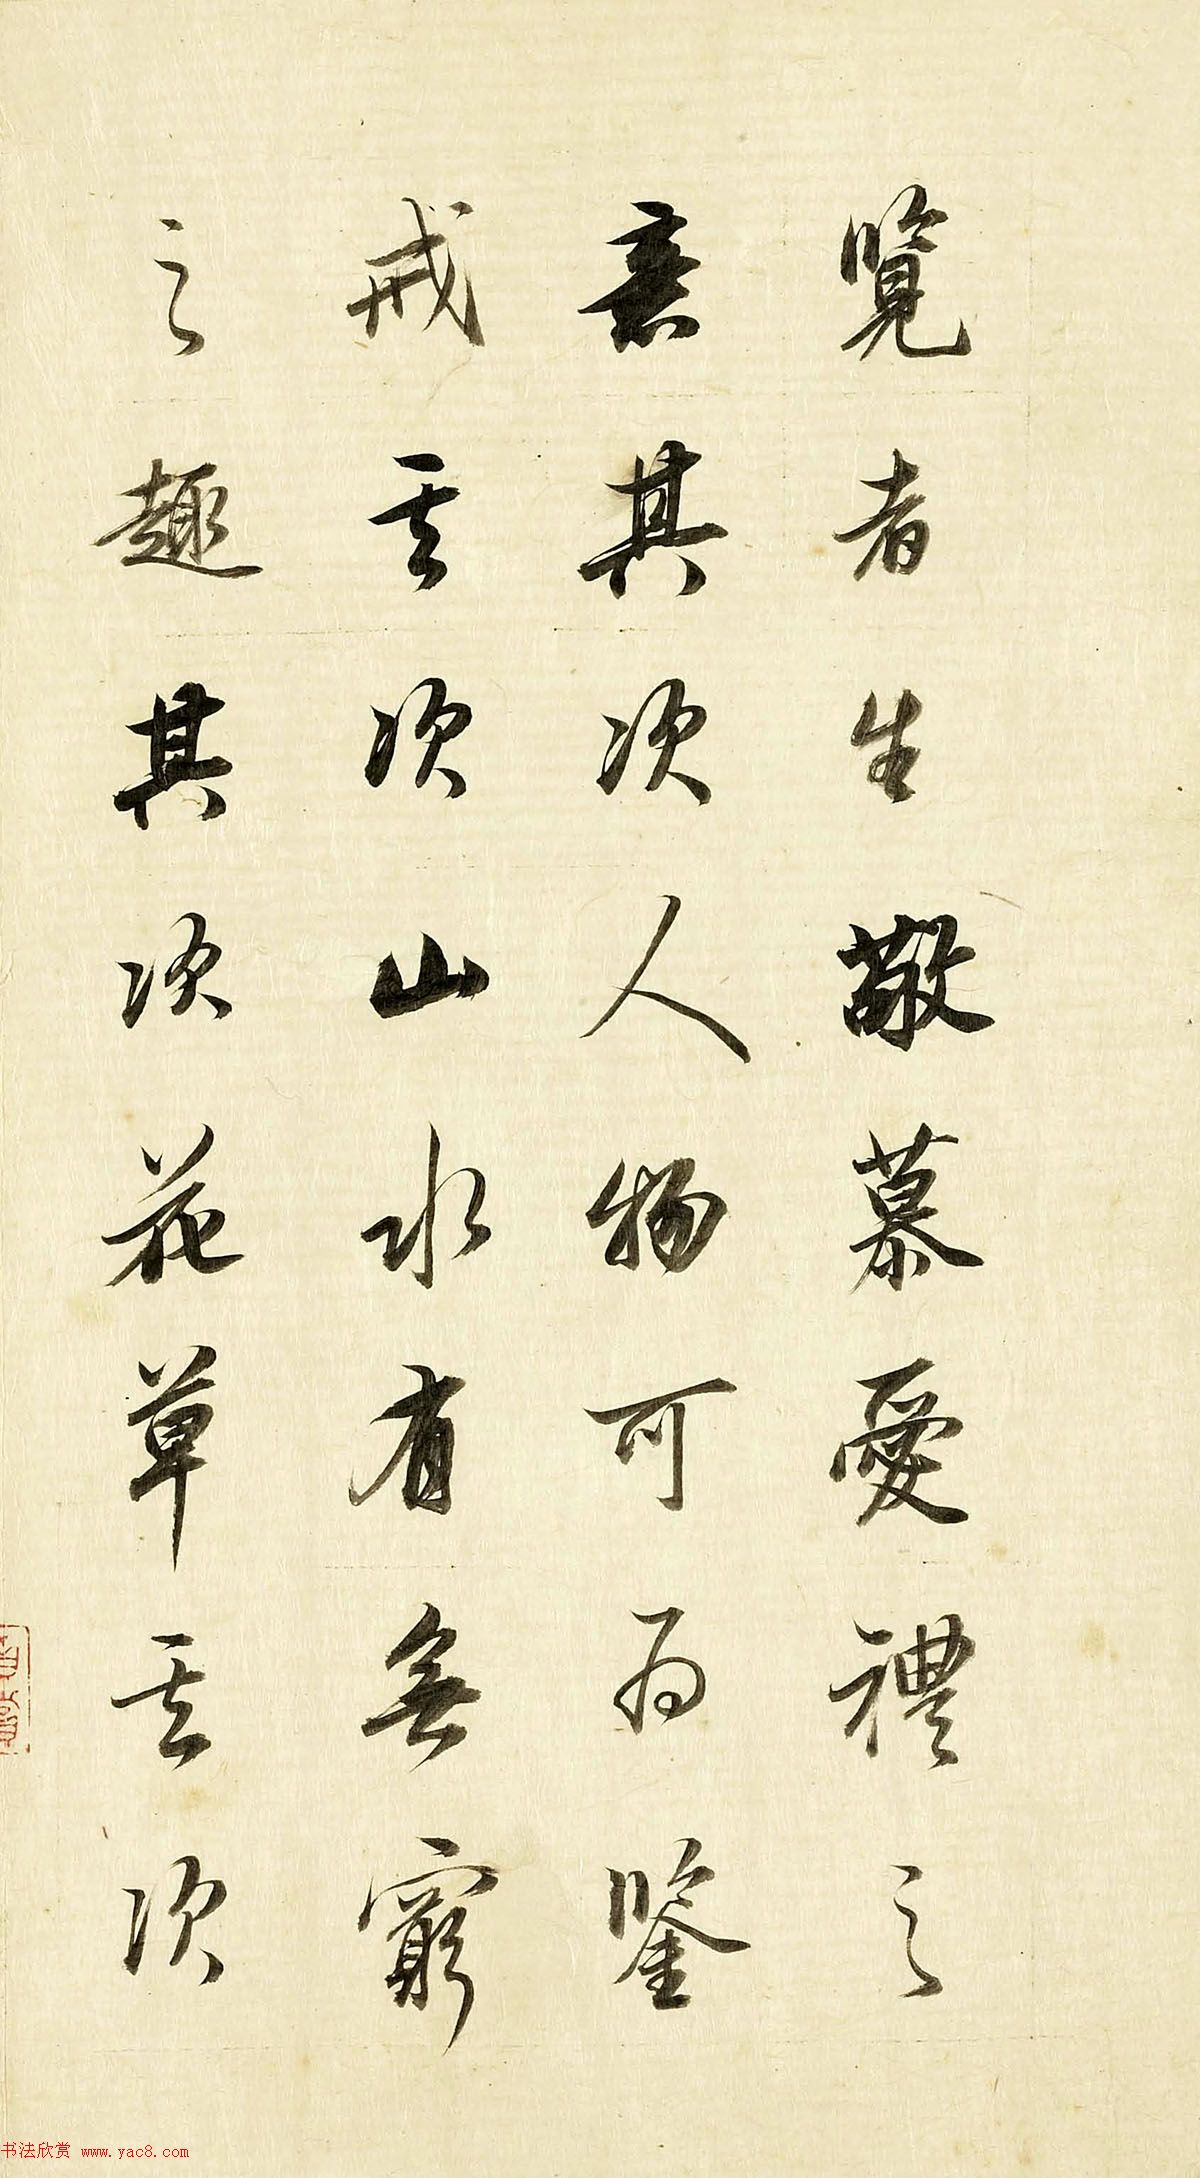 覧者生敬慕愛禮之
意其次人物可為鑒
戒其次山水有無窮
之趣其次花草其次
书法欣赏 www.yac8.com